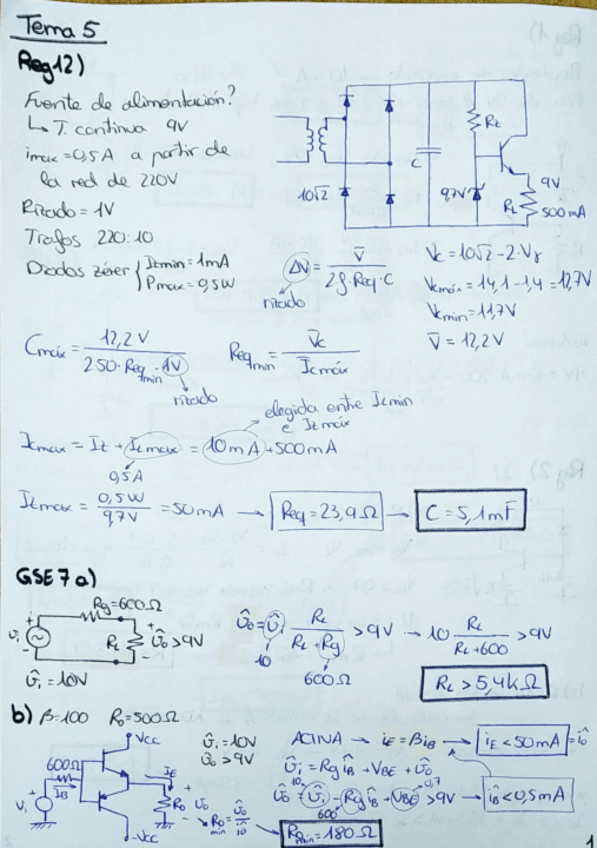 Tema 5
Reg12)
Fuente de alimentación?
↳ T. continua 9V
imax = 0,5A a partir de
la red de 220V
Rizado = 1V
Trafos 220:10
Diodos zéner { Izmin = 1mA
Pmax = 0,5W
10√2
C
Rz
9,7V
9V
RL
500mA
ΔV = V̄ / 2·f·Req·C
rizado
Vc = 10√2 - 2·Vγ
Vcmáx = 14,1 - 1,4 = 12,7V
Vcmin = 11,7V
V̄ = 12,2V
Cmáx = 12,2V / 2·50·Reqmin·1V
rizado
Reqmin = V̄c / Īcmáx
elegida entre Izmin
e Izmáx
Icmax = Iz + ILmax = 10mA + 500mA
0,5A
Izmax = 0,5W / 9,7V = 50mA → Req = 23,9Ω → C = 5,1mF
GSE 7 a)
Rg = 600Ω
vi
RL
v̂o > 9V
v̂i = 10V
v̂o = v̂i RL / RL + Rg > 9V → 10 RL / RL + 600 > 9V
10
600Ω
RL > 5,4kΩ
b) β = 100 Ro = 500Ω
v̂i = 10V
v̂o > 9V
ACTIVA → iE = βiB → iE < 50mA = îo
v̂i = Rg îB + VBE + v̂o
v̂o = v̂i - Rg îB + VBE > 9V → îB < 0,5mA
10
600
0,7
Vcc
600Ω
IB
IE
Vi
Ro
vo
-Vcc
Romin = v̂o / îo → Romin = 180Ω
1